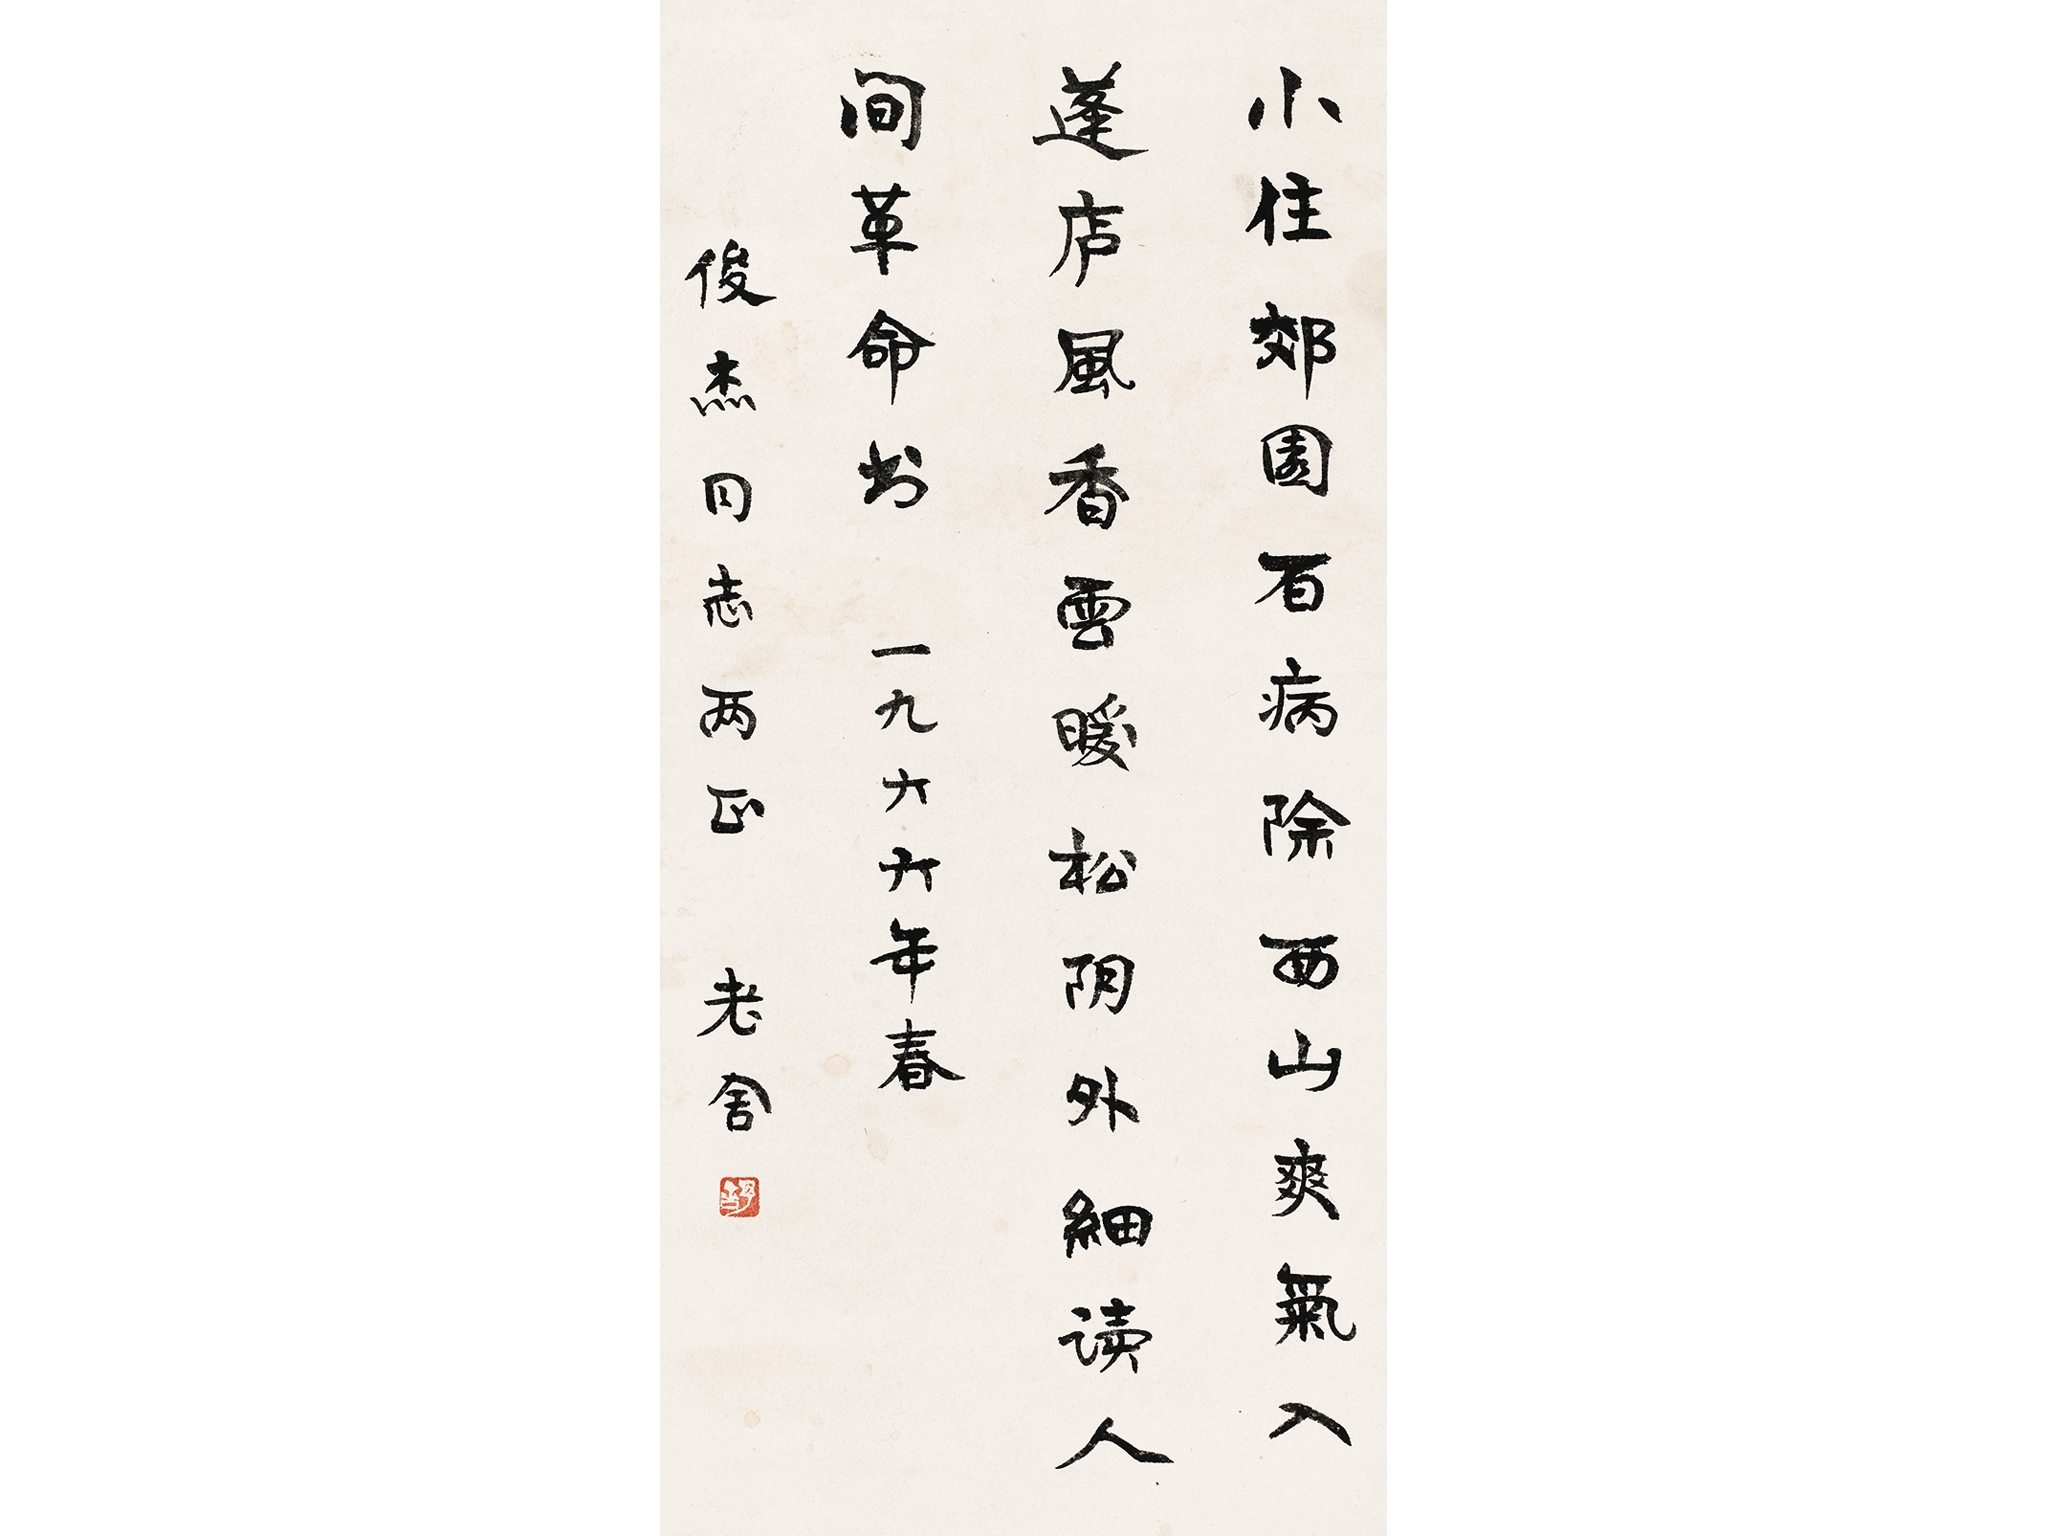 小住郊園百病除西山爽氣入
蓬庐風香雲暖松阴外細读人
间革命书 一九六六年春
俊杰同志两正 老舍
舒